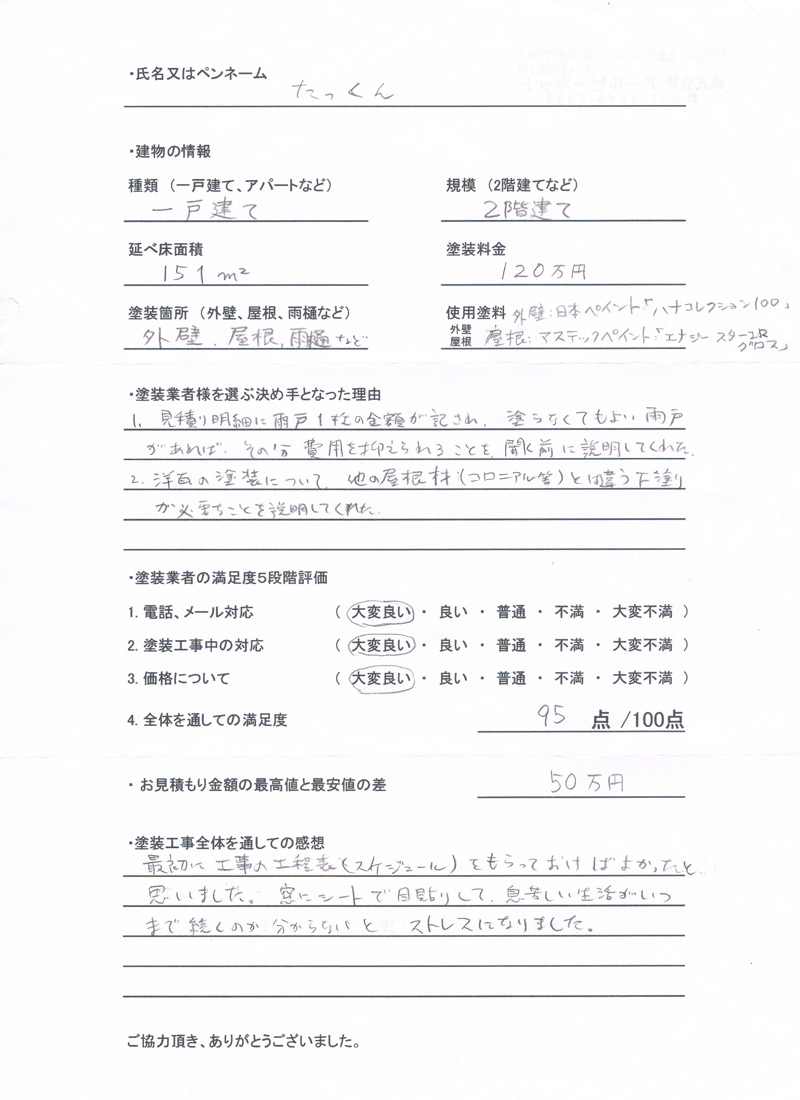 ・氏名又はペンネーム
たっくん
・建物の情報
種類 （一戸建て、アパートなど）
一戸建て
規模 （2階建てなど）
2階建て
延べ床面積
151m²
塗装料金
120万円
塗装箇所 （外壁、屋根、雨樋など）
外壁、屋根、雨樋など
使用塗料
外壁
屋根
外壁：日本ペイント「ハナコレクション100」
屋根：マスチックペイント「エナジースター
グロス」
・塗装業者様を選ぶ決め手となった理由
1、見積り明細に雨戸1枚の金額が記され、塗らなくてもよい雨戸
があれば、その分費用を抑えられることを、聞く前に説明してくれた。
2、洋瓦の塗装について、他の屋根材（コロニアル等）とは違う下塗り
が必要なことを説明してくれた。
・塗装業者の満足度5段階評価
1. 電話、メール対応 （ 大変良い ・ 良い ・ 普通 ・ 不満 ・ 大変不満 ）
2. 塗装工事中の対応 （ 大変良い ・ 良い ・ 普通 ・ 不満 ・ 大変不満 ）
3. 価格について （ 大変良い ・ 良い ・ 普通 ・ 不満 ・ 大変不満 ）
4. 全体を通しての満足度 95 点 /100点
・ お見積もり金額の最高値と最安値の差 50万円
・塗装工事全体を通しての感想
最初に工事の工程表（スケジュール）をもらっておけばよかったと
思いました。窓にシートで目貼りして、息苦しい生活がいつ
まで続くのか分からないと ストレスになりました。
ご協力頂き、ありがとうございました。